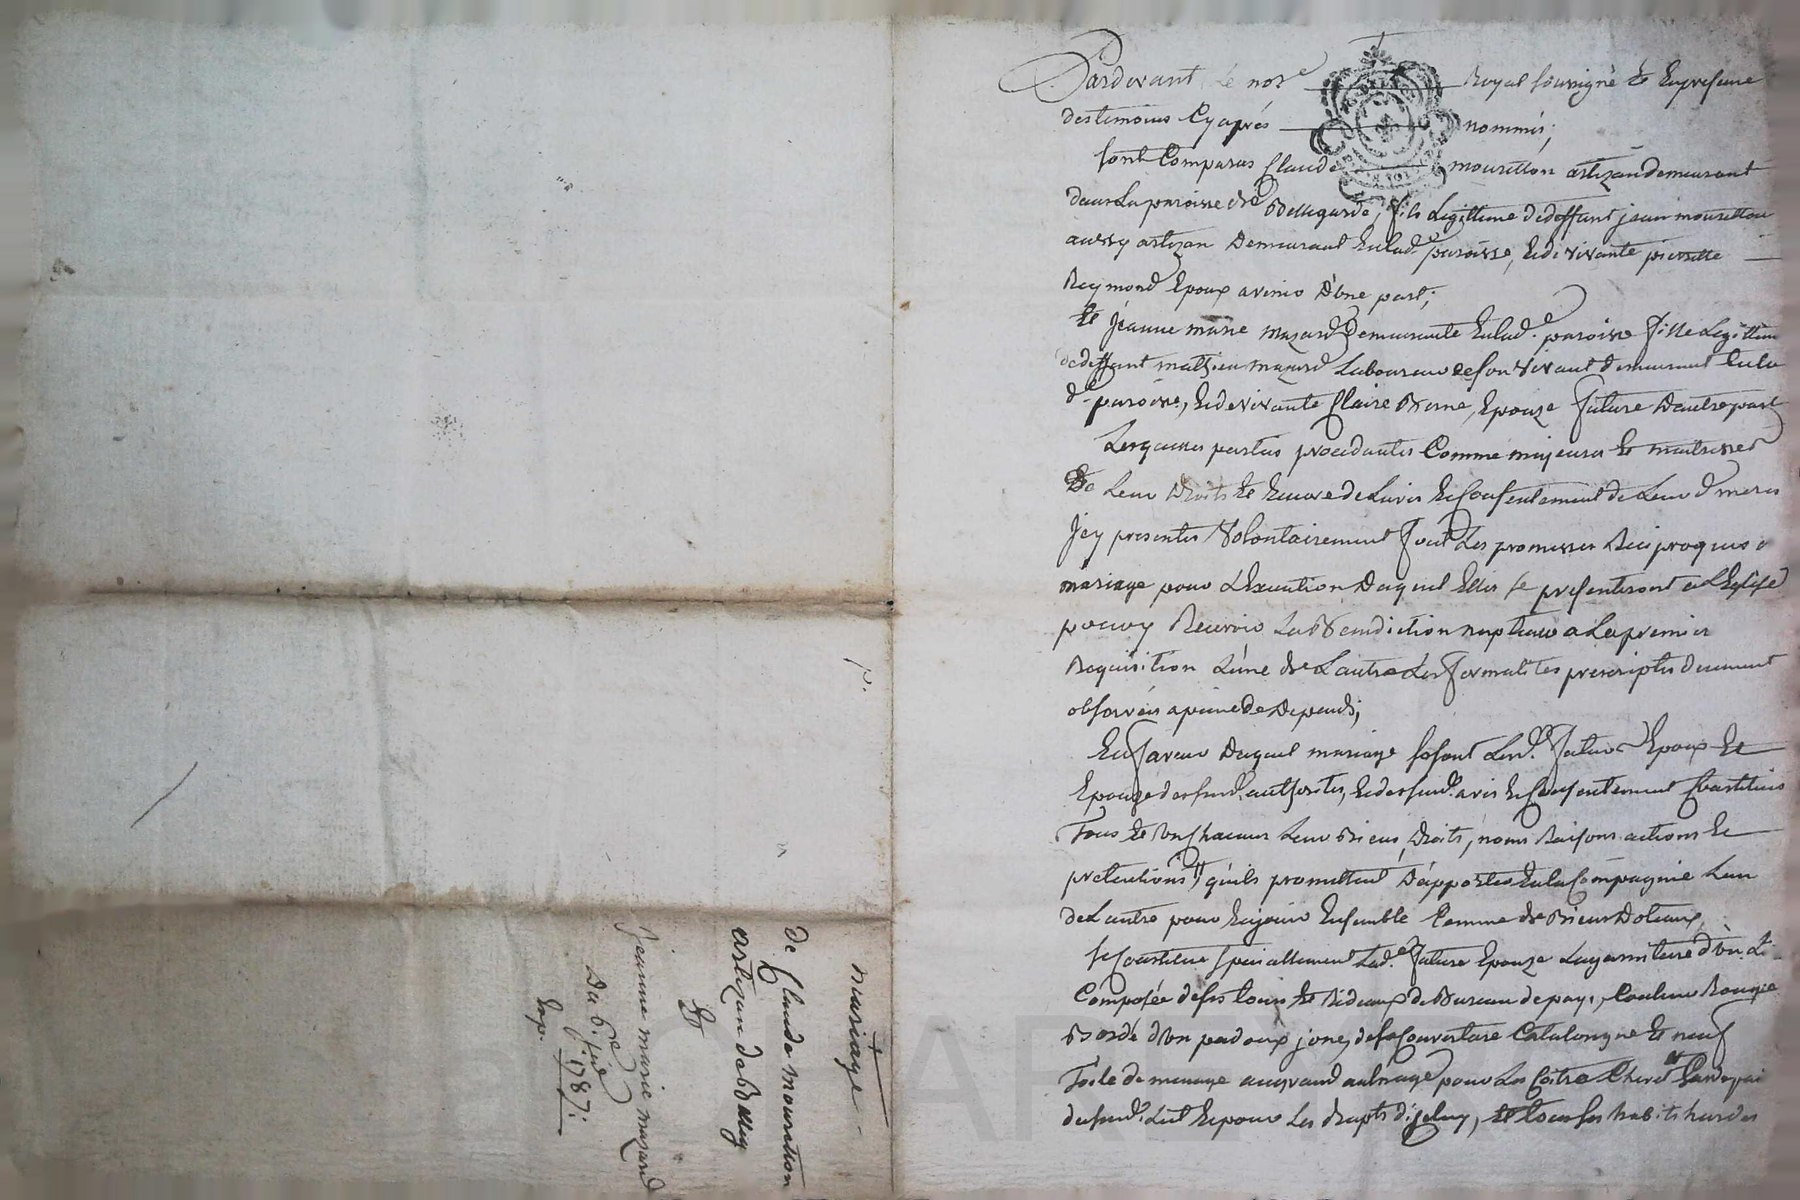 mariage
de Claude mouretton
artizan de Belleg
Et
jeanne marie mazard
Du 6.
1787.
Exp.
Pardevant le nore Royal soussigné Et En presence
des temoins Cy aprés nommés;
sont Comparus Claude mouretton artizan demeurant
dans La paroisse de Bellegarde, fils Legittime de deffunt jean mouretton
aussy artizan Demeurant En lad. paroisse, Et de vivante pierrette
Reymond Epoux avenir D'une part;
Et jeanne marie mazard Demeurante En lad.e paroisse fille Legittime
de deffunt mathieu mazard Laboureur de son vivant demeurant En la
d. paroisse, Et de vivante Claire Epouze future D'autre part
Lesquelles parties procedantes Comme majeures Et maitresses
De Leur Droits Et Encore de L'avis Et Consentement de Leur d. meres
jcy presentes Volontairement font Les promesses Reciproques
mariage pour L'Execution Duquel Elles se presenteront a L'Eglise
pour y Recevoir La Benediction nuptiale a La premier
Requisition L'une de L'autre Les formalités prescriptes duement
observées a peine de Depends;
En faveur Duquel mariage se sont Lesd. futurs Epoux Et
Epouze de leurd. authorités, Et de leurd. avis Et Consentement Constitués
Tous Et Un Chacuns Leur Biens, Droits, noms Raisons actions Et
pretentions, qu'ils promettent D'apporter En la Compagnie L'un
de L'autre pour En jouir Ensemble Comme de Biens Dotaux
se Constitue specialement Lad.e future Epouze La garniture d'un Lit
Composée de ses tours Et Rideaux de Bureau de pays, Couleur Rouge
Bordé d'un padoux jone, de sa Couverture Catalongne Et neuf
Toile de menage pour Les Coitre Chevet
dud. Lit Et pour Les draps d'iceluy, Et tous ses habits hardes